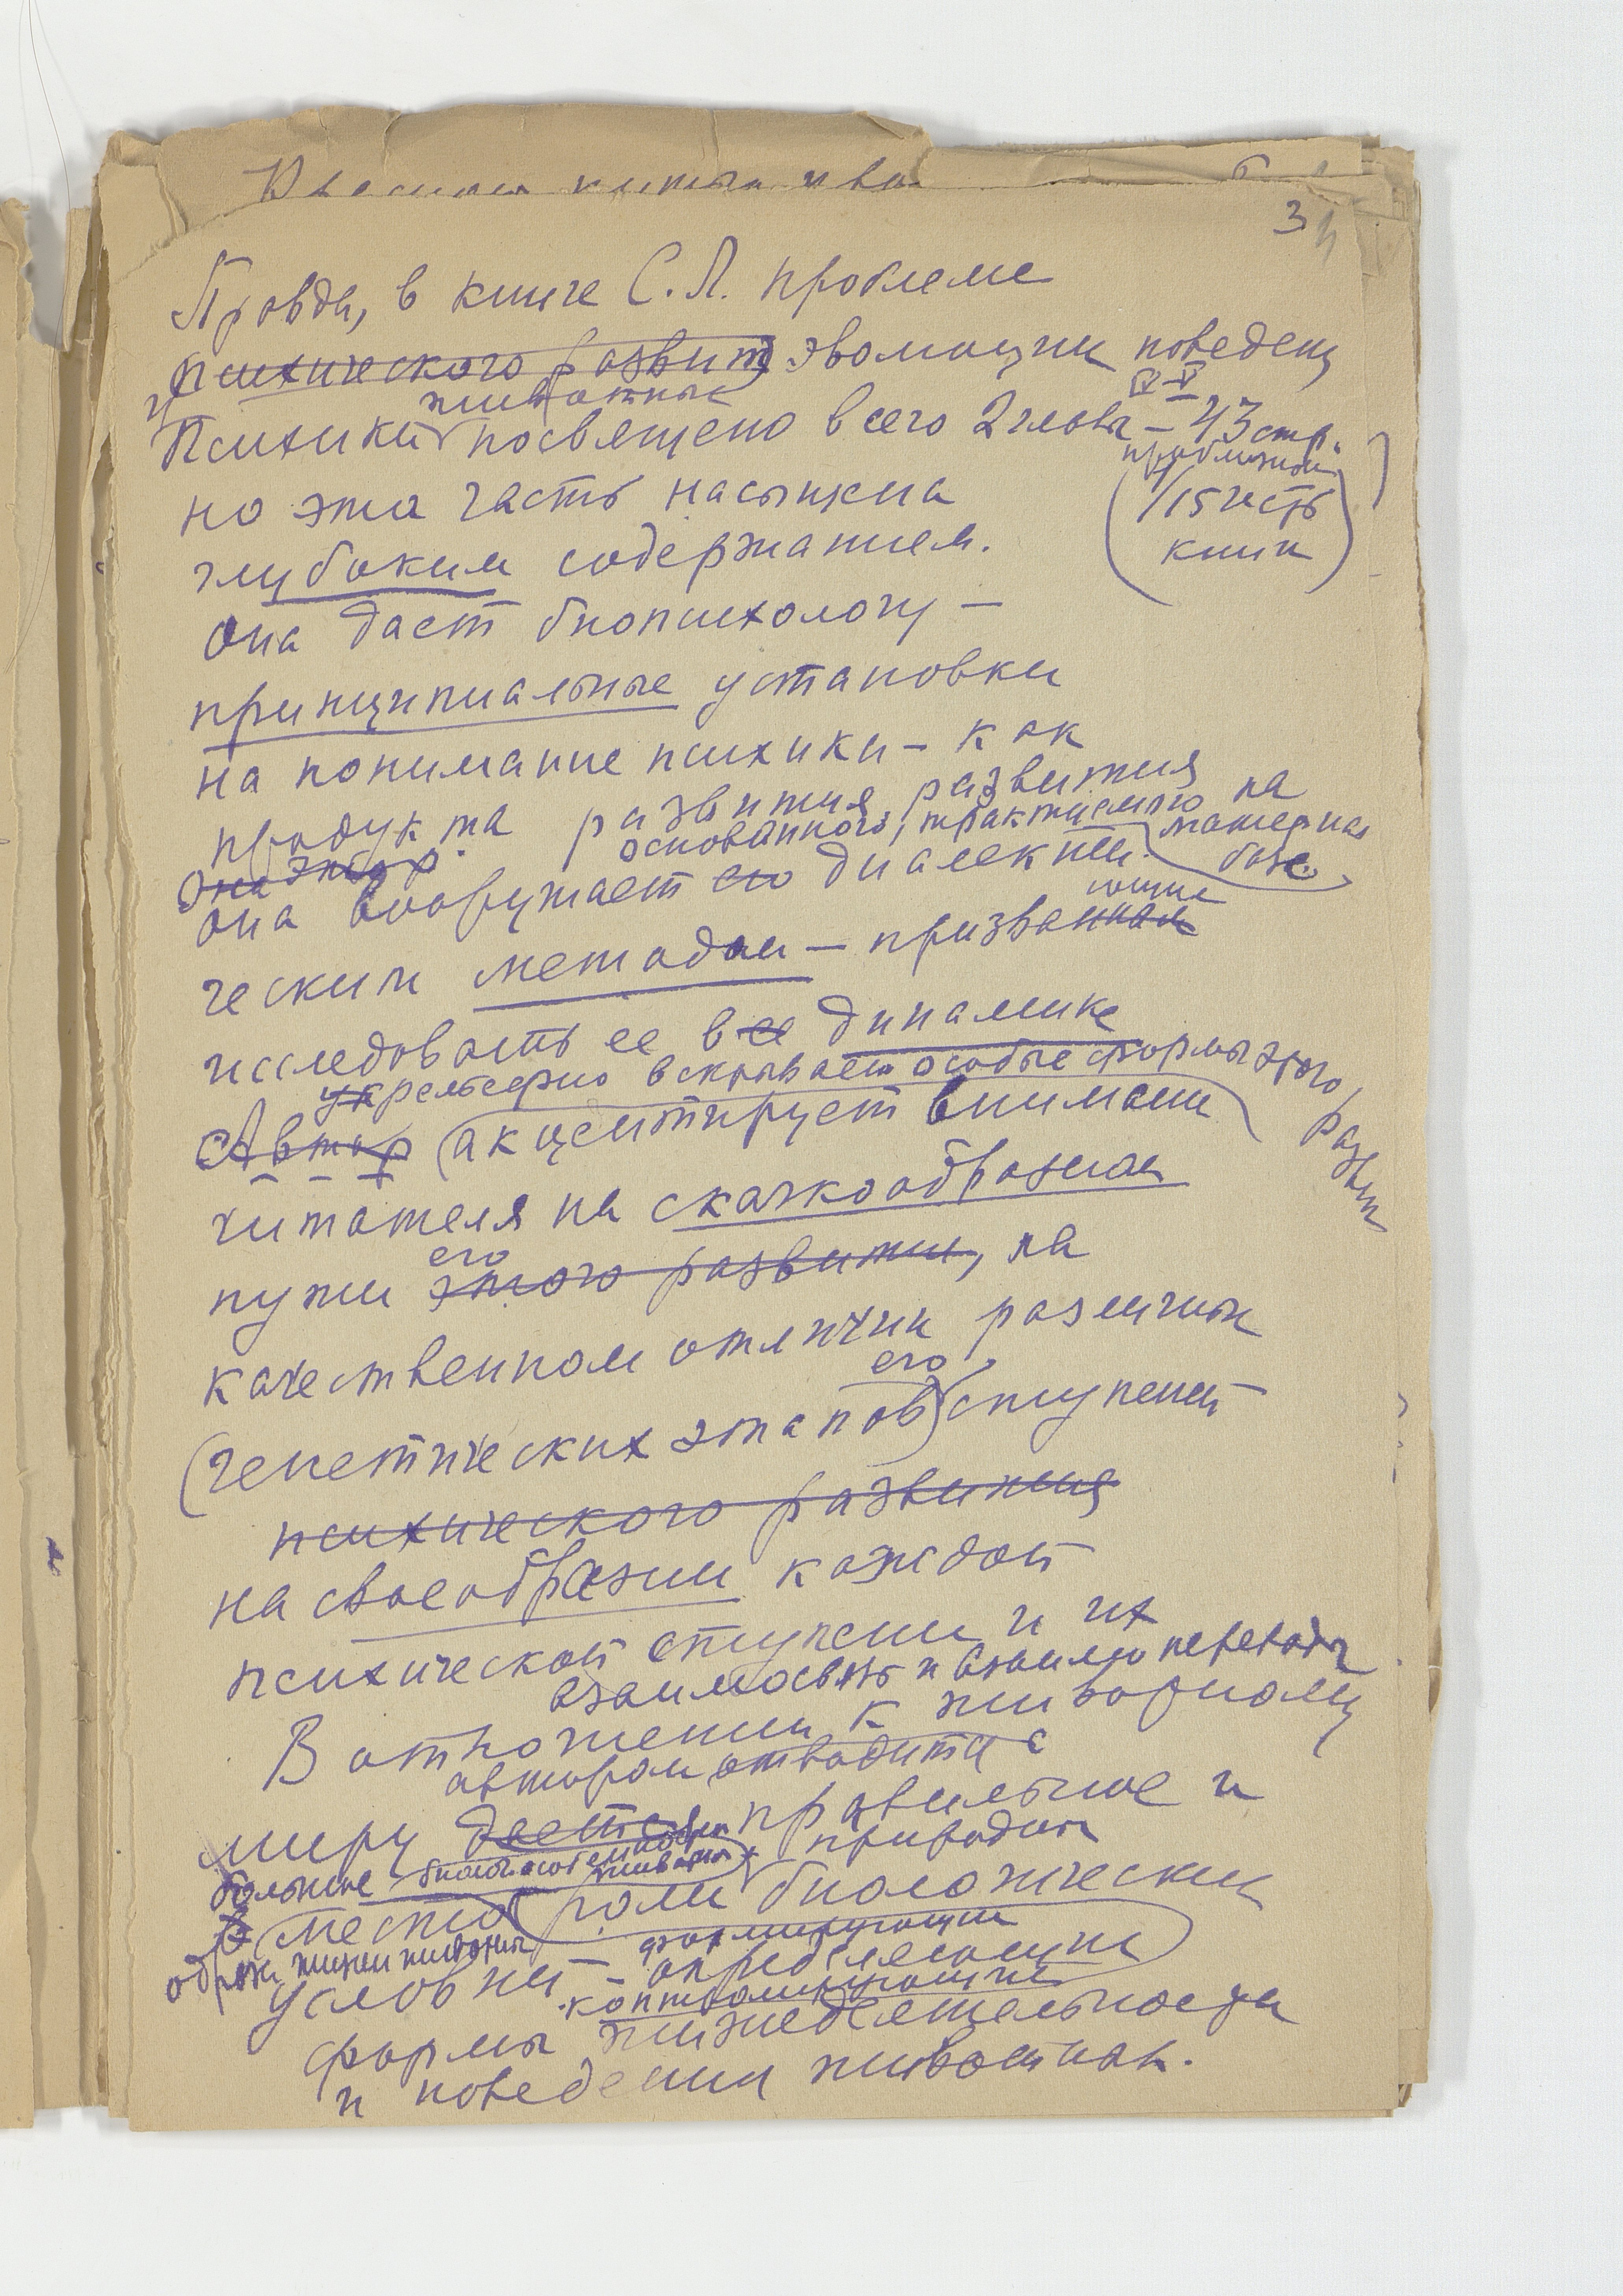 3
Правда, в книге С.Л. проблеме
психического развит эволюции поведен
IV–V
и животных
Психики посвящено всего 2 главы – 43 стр.
приблизит
(1/15 часть
книги)
но эта часть насыщена
глубоким содержанием.
Она дает биопсихологу –
принципиальные установки
на понимание психики – как
продукта развития, развития
основанного, трактуемого на
материал базе.
Она автор
она вооружает его диалекти
ческим методом – призванным
исследовать ее в ее динамике
рельефно вскрывает особые формы этого
развит
Автор (акцентирует внимание
читателя на скачкообразном
его
пути этого развития, на
качественном отличии различных
его
(генетических этапов) ступеней
психического развития
на своеобразии каждой
психической ступени и их
взаимосвязь и взаимопереходы
В отношении к животному
автором отводится
миру дается правильное и
большое природным
в место роли биологических
образ жизни животных формирующим
условий – определяющим
контролирующие
формы жизнедеятельности
и поведения животных.